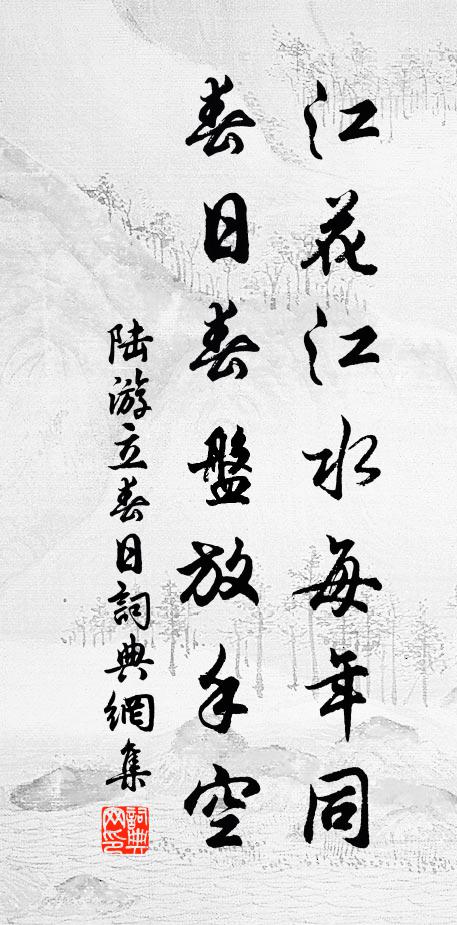 江花江水每年同
春日春盤放手空
陸游立春日詞典網集
詞典
网印